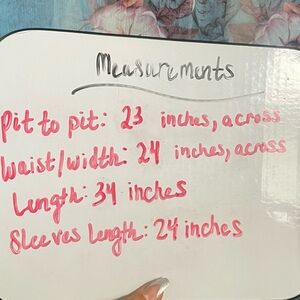 Measurements
Pit to pit: 23 inches, across
Waist/width: 24 inches, across
Length: 34 inches
Sleeves Length: 24 inches